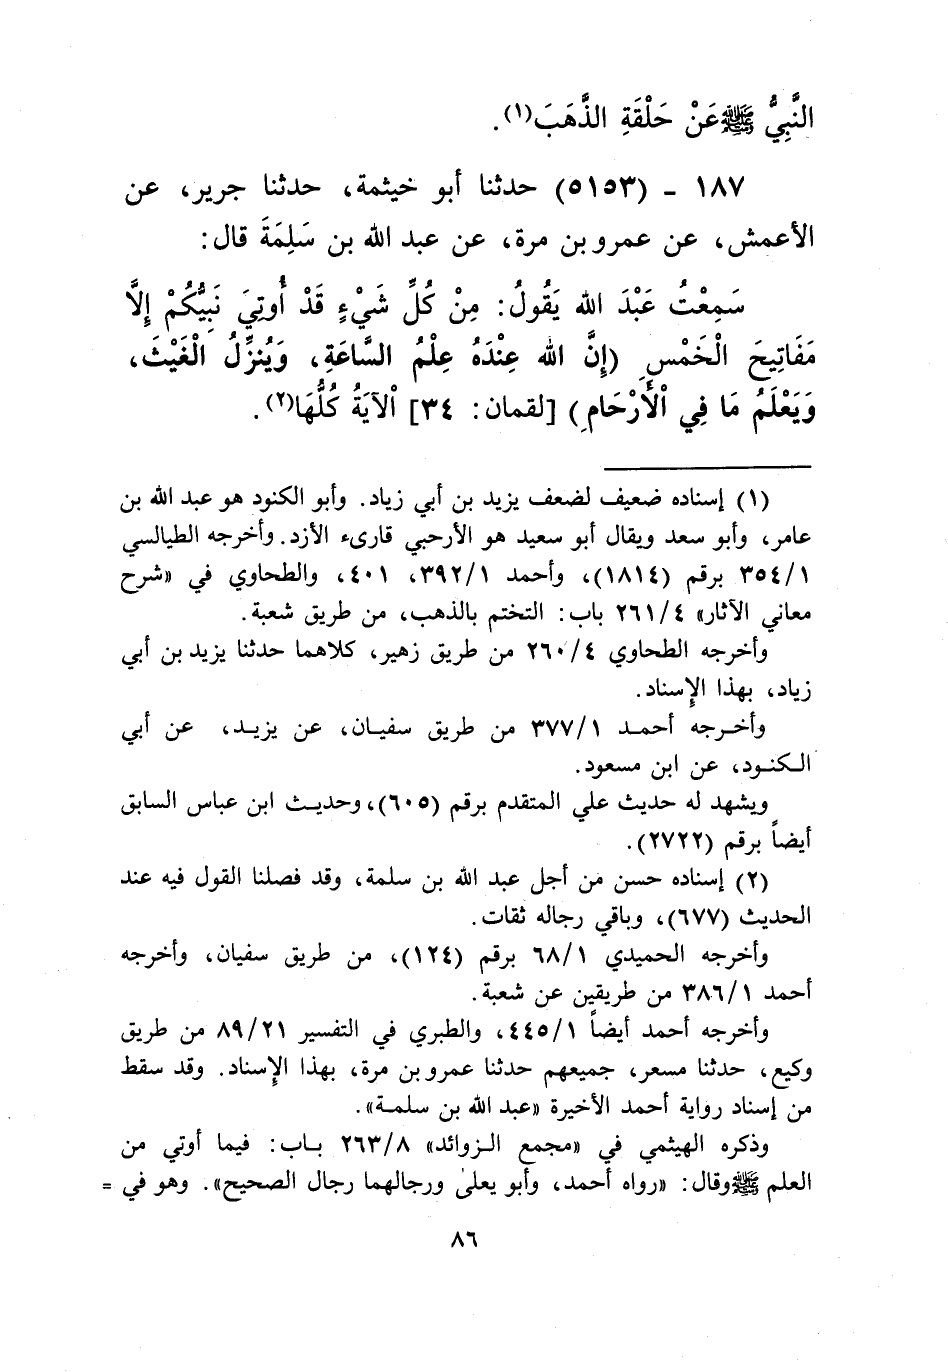 النَّبِيُّ ﷺ عَنْ حَلْقَةِ الذَّهَبَ(١).
١٨٧ - (٥١٥٣) حدثنا أبو خيثمة، حدثنا جرير، عن
الأعمش، عن عمرو بن مرة، عن عبد الله بن سَلِمَةَ قال:
سَمِعْتُ عَبْدَ الله يَقُولُ: مِنْ كُلِّ شَيْءٍ قَدْ أُوتِيَ نَبِيُّكُمْ إِلَّا
مَفَاتِيحَ الْخَمْسِ (إِنَّ الله عِنْدَهُ عِلْمُ السَّاعَةِ، وَيُنزِّلُ الْغَيْثَ،
وَيَعْلَمُ مَا فِي الْأَرْحَامِ) [لقمان: ٣٤] اْلآيَةُ كُلُّهَا(٢).
(١) إسناده ضعيف لضعف يزيد بن أبي زياد. وأبو الكنود هو عبد الله بن
عامر، وأبو سعد ويقال أبو سعيد هو الأرحبي قارىء الأزد. وأخرجه الطيالسي
٣٥٤/١ برقم (١٨١٤)، وأحمد ٣٩٢/١، ٤٠١، والطحاوي في «شرح
معاني الآثار» ٢٦١/٤ باب: التختم بالذهب، من طريق شعبة.
وأخرجه الطحاوي ٢٦٠/٤ من طريق زهير، كلاهما حدثنا يزيد بن أبي
زياد، بهذا الإسناد.
وأخرجه أحمد ٣٧٧/١ من طريق سفيان، عن يزيد، عن أبي
الكنود، عن ابن مسعود.
ويشهد له حديث علي المتقدم برقم (٦٠٥)، وحديث ابن عباس السابق
أيضاً برقم (٢٧٢٢).
(٢) إسناده حسن من أجل عبد الله بن سلمة، وقد فصلنا القول فيه عند
الحديث (٦٧٧)، وباقي رجاله ثقات.
وأخرجه الحميدي ٦٨/١ برقم (١٢٤)، من طريق سفيان، وأخرجه
أحمد ٣٨٦/١ من طريقين عن شعبة.
وأخرجه أحمد أيضاً ٤٤٥/١، والطبري في التفسير ٨٩/٢١ من طريق
وكيع، حدثنا مسعر، جميعهم حدثنا عمرو بن مرة، بهذا الإسناد. وقد سقط
من إسناد رواية أحمد الأخيرة «عبد الله بن سلمة».
وذكره الهيثمي في «مجمع الزوائد» ٢٦٣/٨ باب: فيما أوتي من
العلم ﷺ وقال: «رواه أحمد، وأبو يعلىٰ ورجالهما رجال الصحيح». وهو في =
٨٦